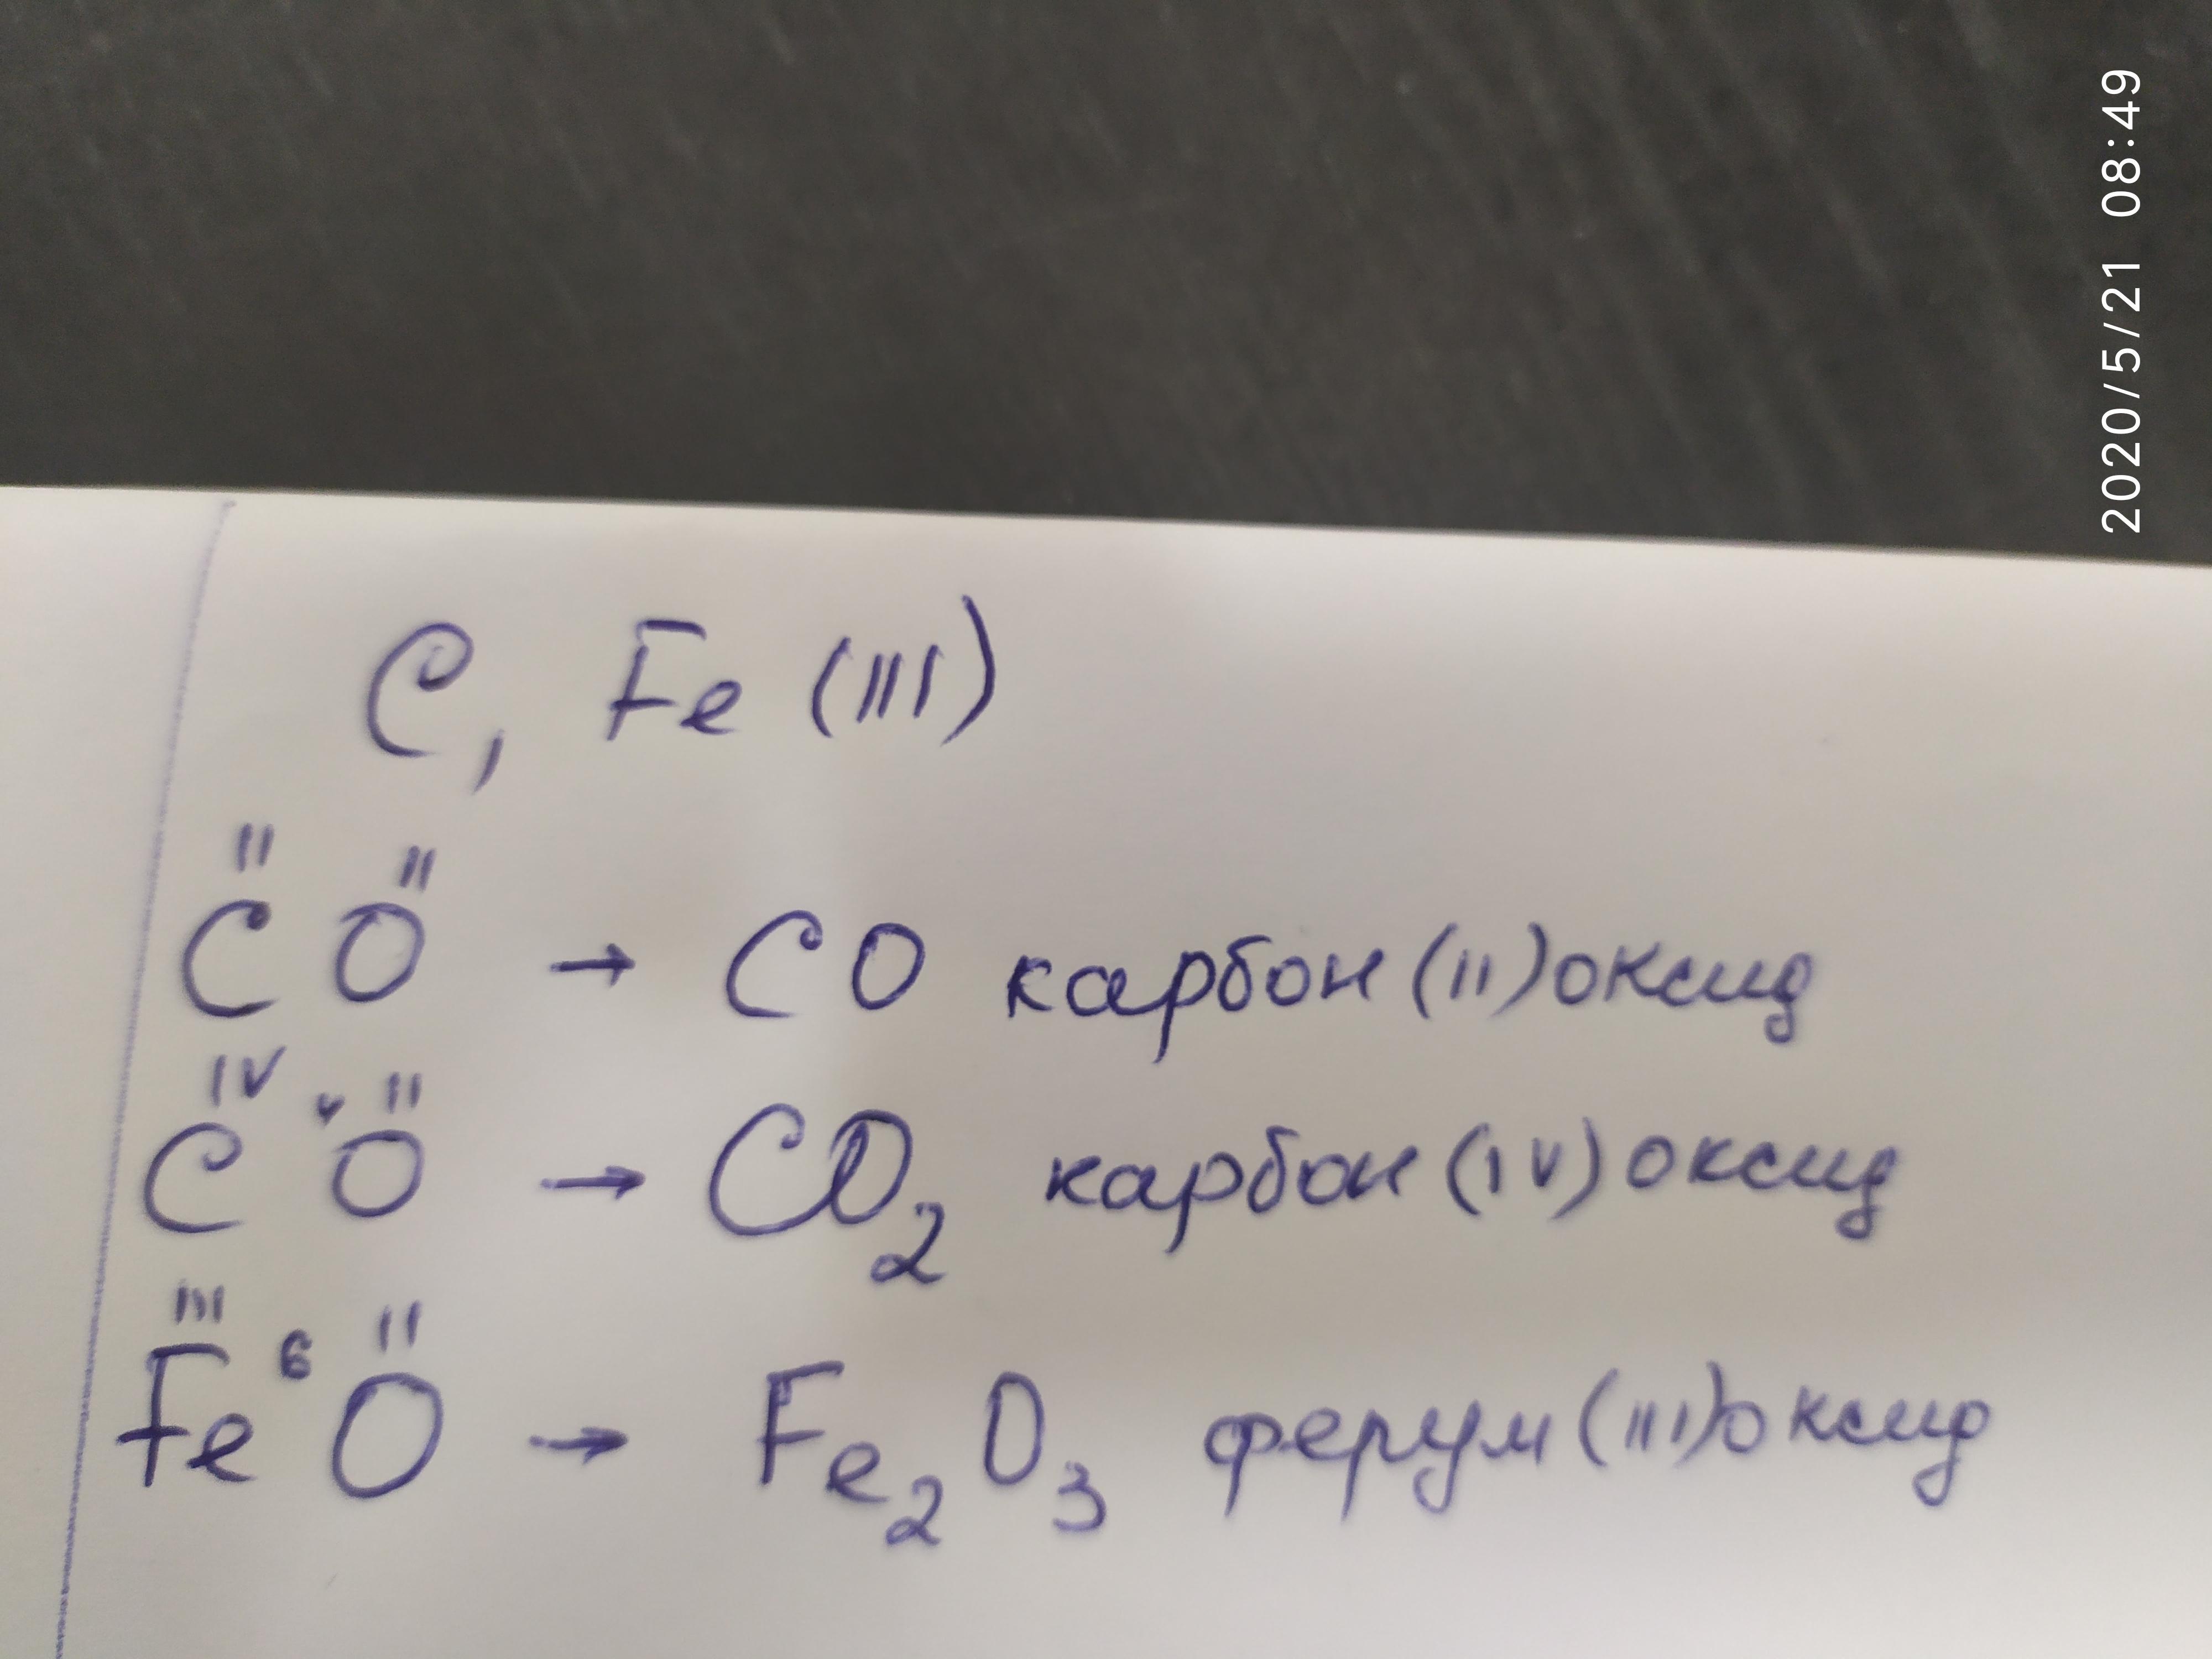 2020/5/21 08:49
C, Fe (III)
II II
C O → CO карбон (II) оксид
IV 4 II
C O → CO₂ карбон (IV) оксид
III 6 II
Fe O → Fe₂O₃ ферум (III) оксид